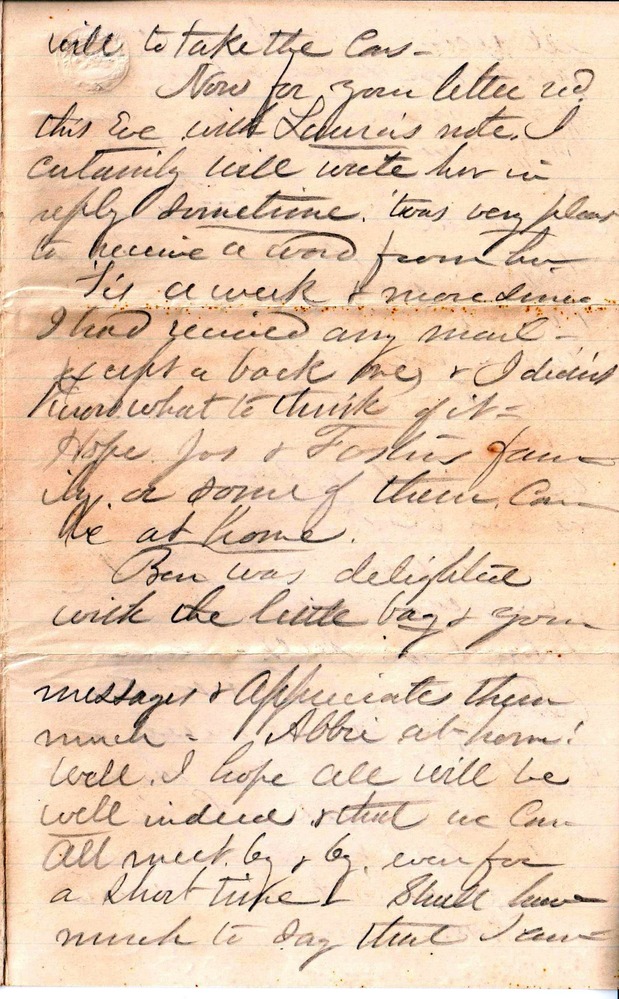 will to take the Cars -
Now for your letter recd
this Eve with Laura's note. I
certainly will write her in
reply sometime. 'twas very pleas
to receive a word from her.
'Tis a week & more since
I had received any mail -
except a back one, & I didn't
know what to think of it -
Hope Jos & Fosters fam
ily, or some of them, can
be at home.
Ben was delighted
with the little bag & your
messages & Appreciates them
much - Abbie at home!
Well. I hope all will be
well indeed, & that we can
All meet by & by, even for
a short time - Shall have
much to say that I can